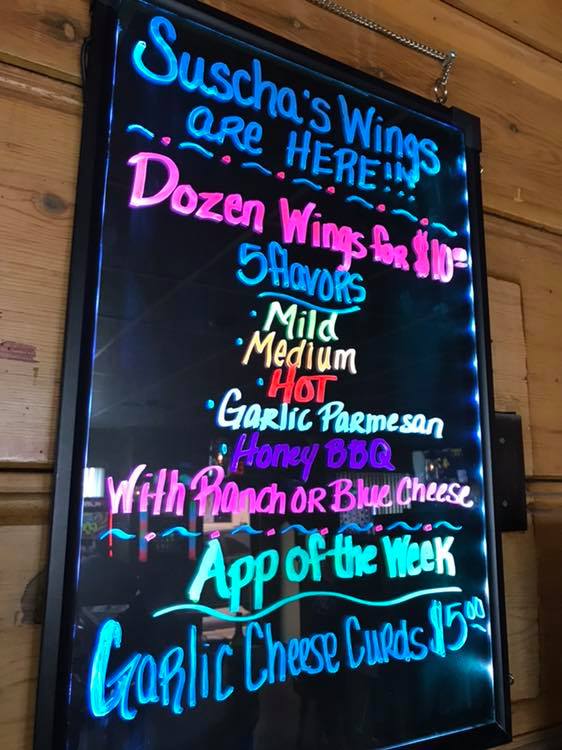 Suscha's Wings
are HERE!!!
Dozen Wings for $10.00
5 flavors
· Mild
· Medium
· HOT
· Garlic Parmesan
· Honey BBQ
With Ranch OR Blue Cheese
App of the Week
Garlic Cheese Curds $5.00